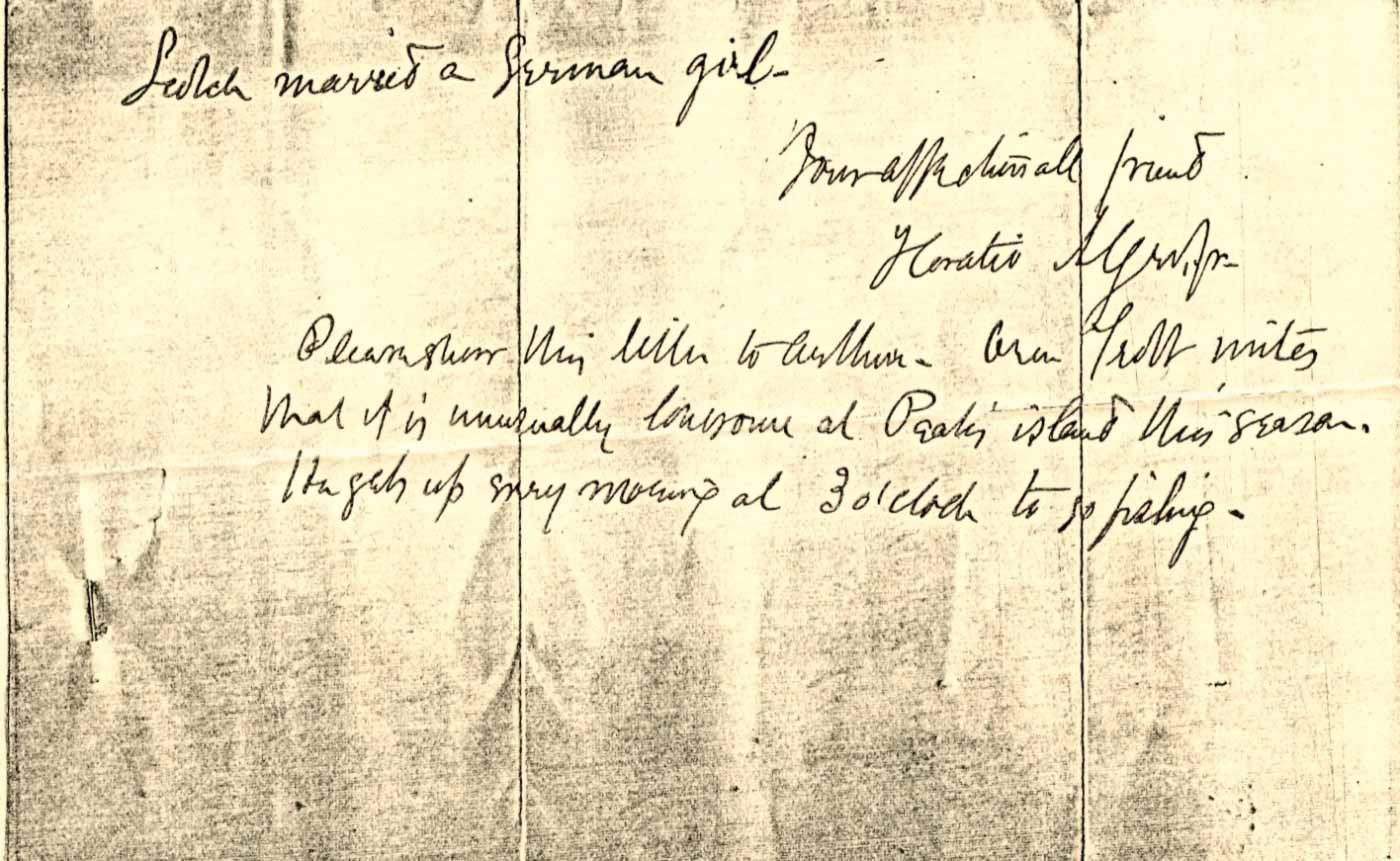 Scotch married a German girl-
Your affectionate friend
Horatio Alger, Jr-
Please show this letter to Arthur- Oren Trott writes
that it is unusually lonesome at Peaks island this season.
He gets up every morning at 3 o'clock to go fishing-